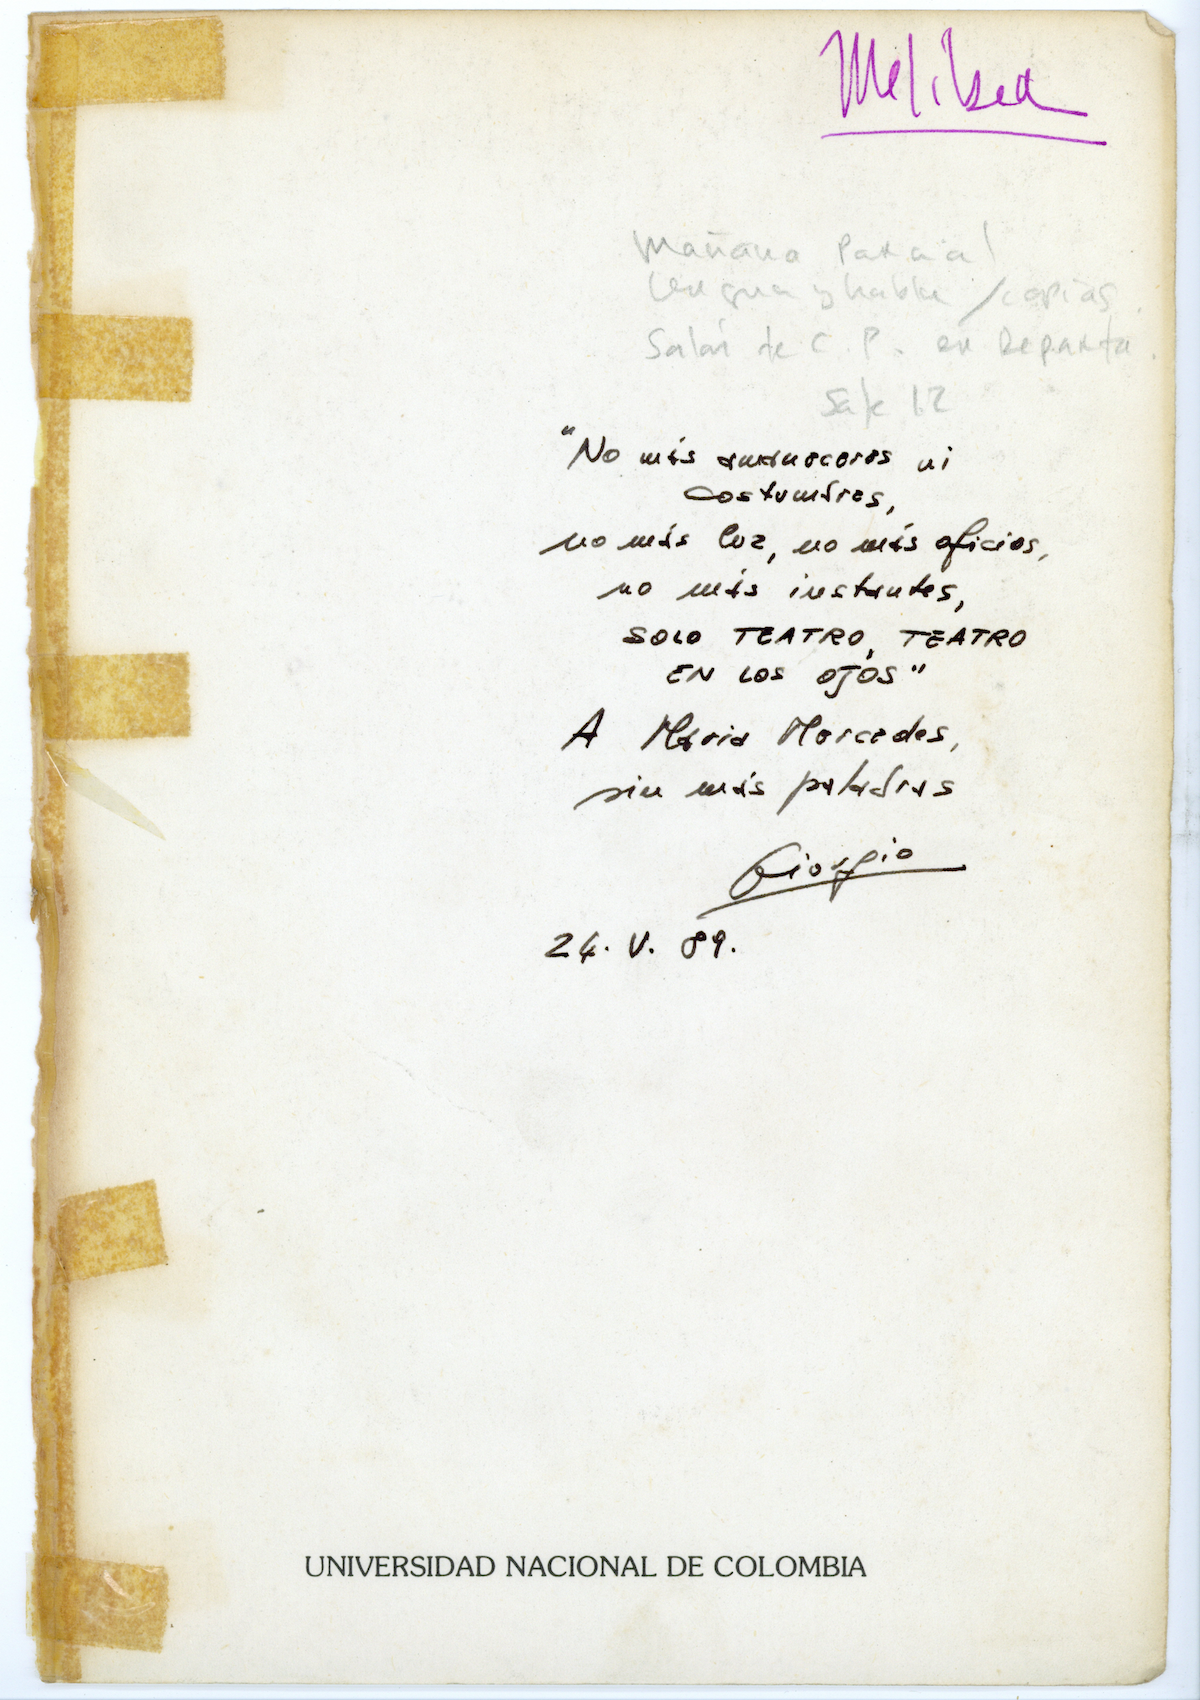 Melibea
Mañana Para a
Lengua y habla / copias
Salón de C. P. en Departa.
12
"No más amaneceres ni
costumbres,
no más luz, no más oficios,
no más instantes,
SOLO TEATRO, TEATRO
EN LOS OJOS"
A Maria Mercedes,
sin más palabras
Giorgio
24. V. 89.
UNIVERSIDAD NACIONAL DE COLOMBIA